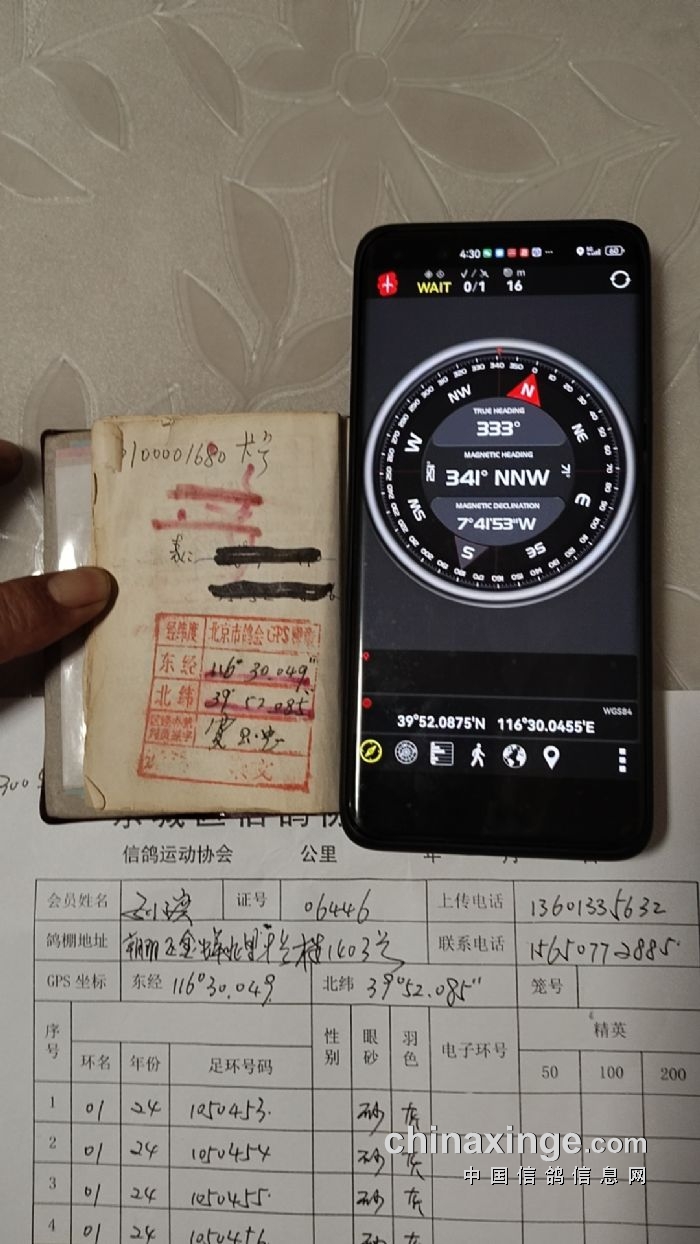 4:30
60
WAIT 0/1 16
m
330 340 350 0 10 20 30
N
NW
NE
W
E
SW
SE
S
TRUE HEADING
333°
MAGNETIC HEADING
341° NNW
71°
251°
MAGNETIC DECLINATION
7°41'53"W
WGS84
39°52.0875'N 116°30.0455'E
0100001680 卡号
经纬度 北京市鸽会GPS
东经 116° 30.049"
北纬 39° 52.085"
300
信鸽运动协会 公里 年 月 日
会员姓名 证号 06446 上传电话 13601335632
鸽棚地址 1403号 联系电话 15650772885
GPS 坐标 东经 116°30.049 北纬 39°52.085" 笼号
序号 性别 眼砂 羽色 电子环号 精英
环名 年份 足环号码 50 100 200
1 01 24 1050453. 砂 灰
2 01 24 1050454 砂 灰
3 01 24 1050455. 砂 灰
4 01 24 1050456
chinaxinge.com
中国信鸽信息网